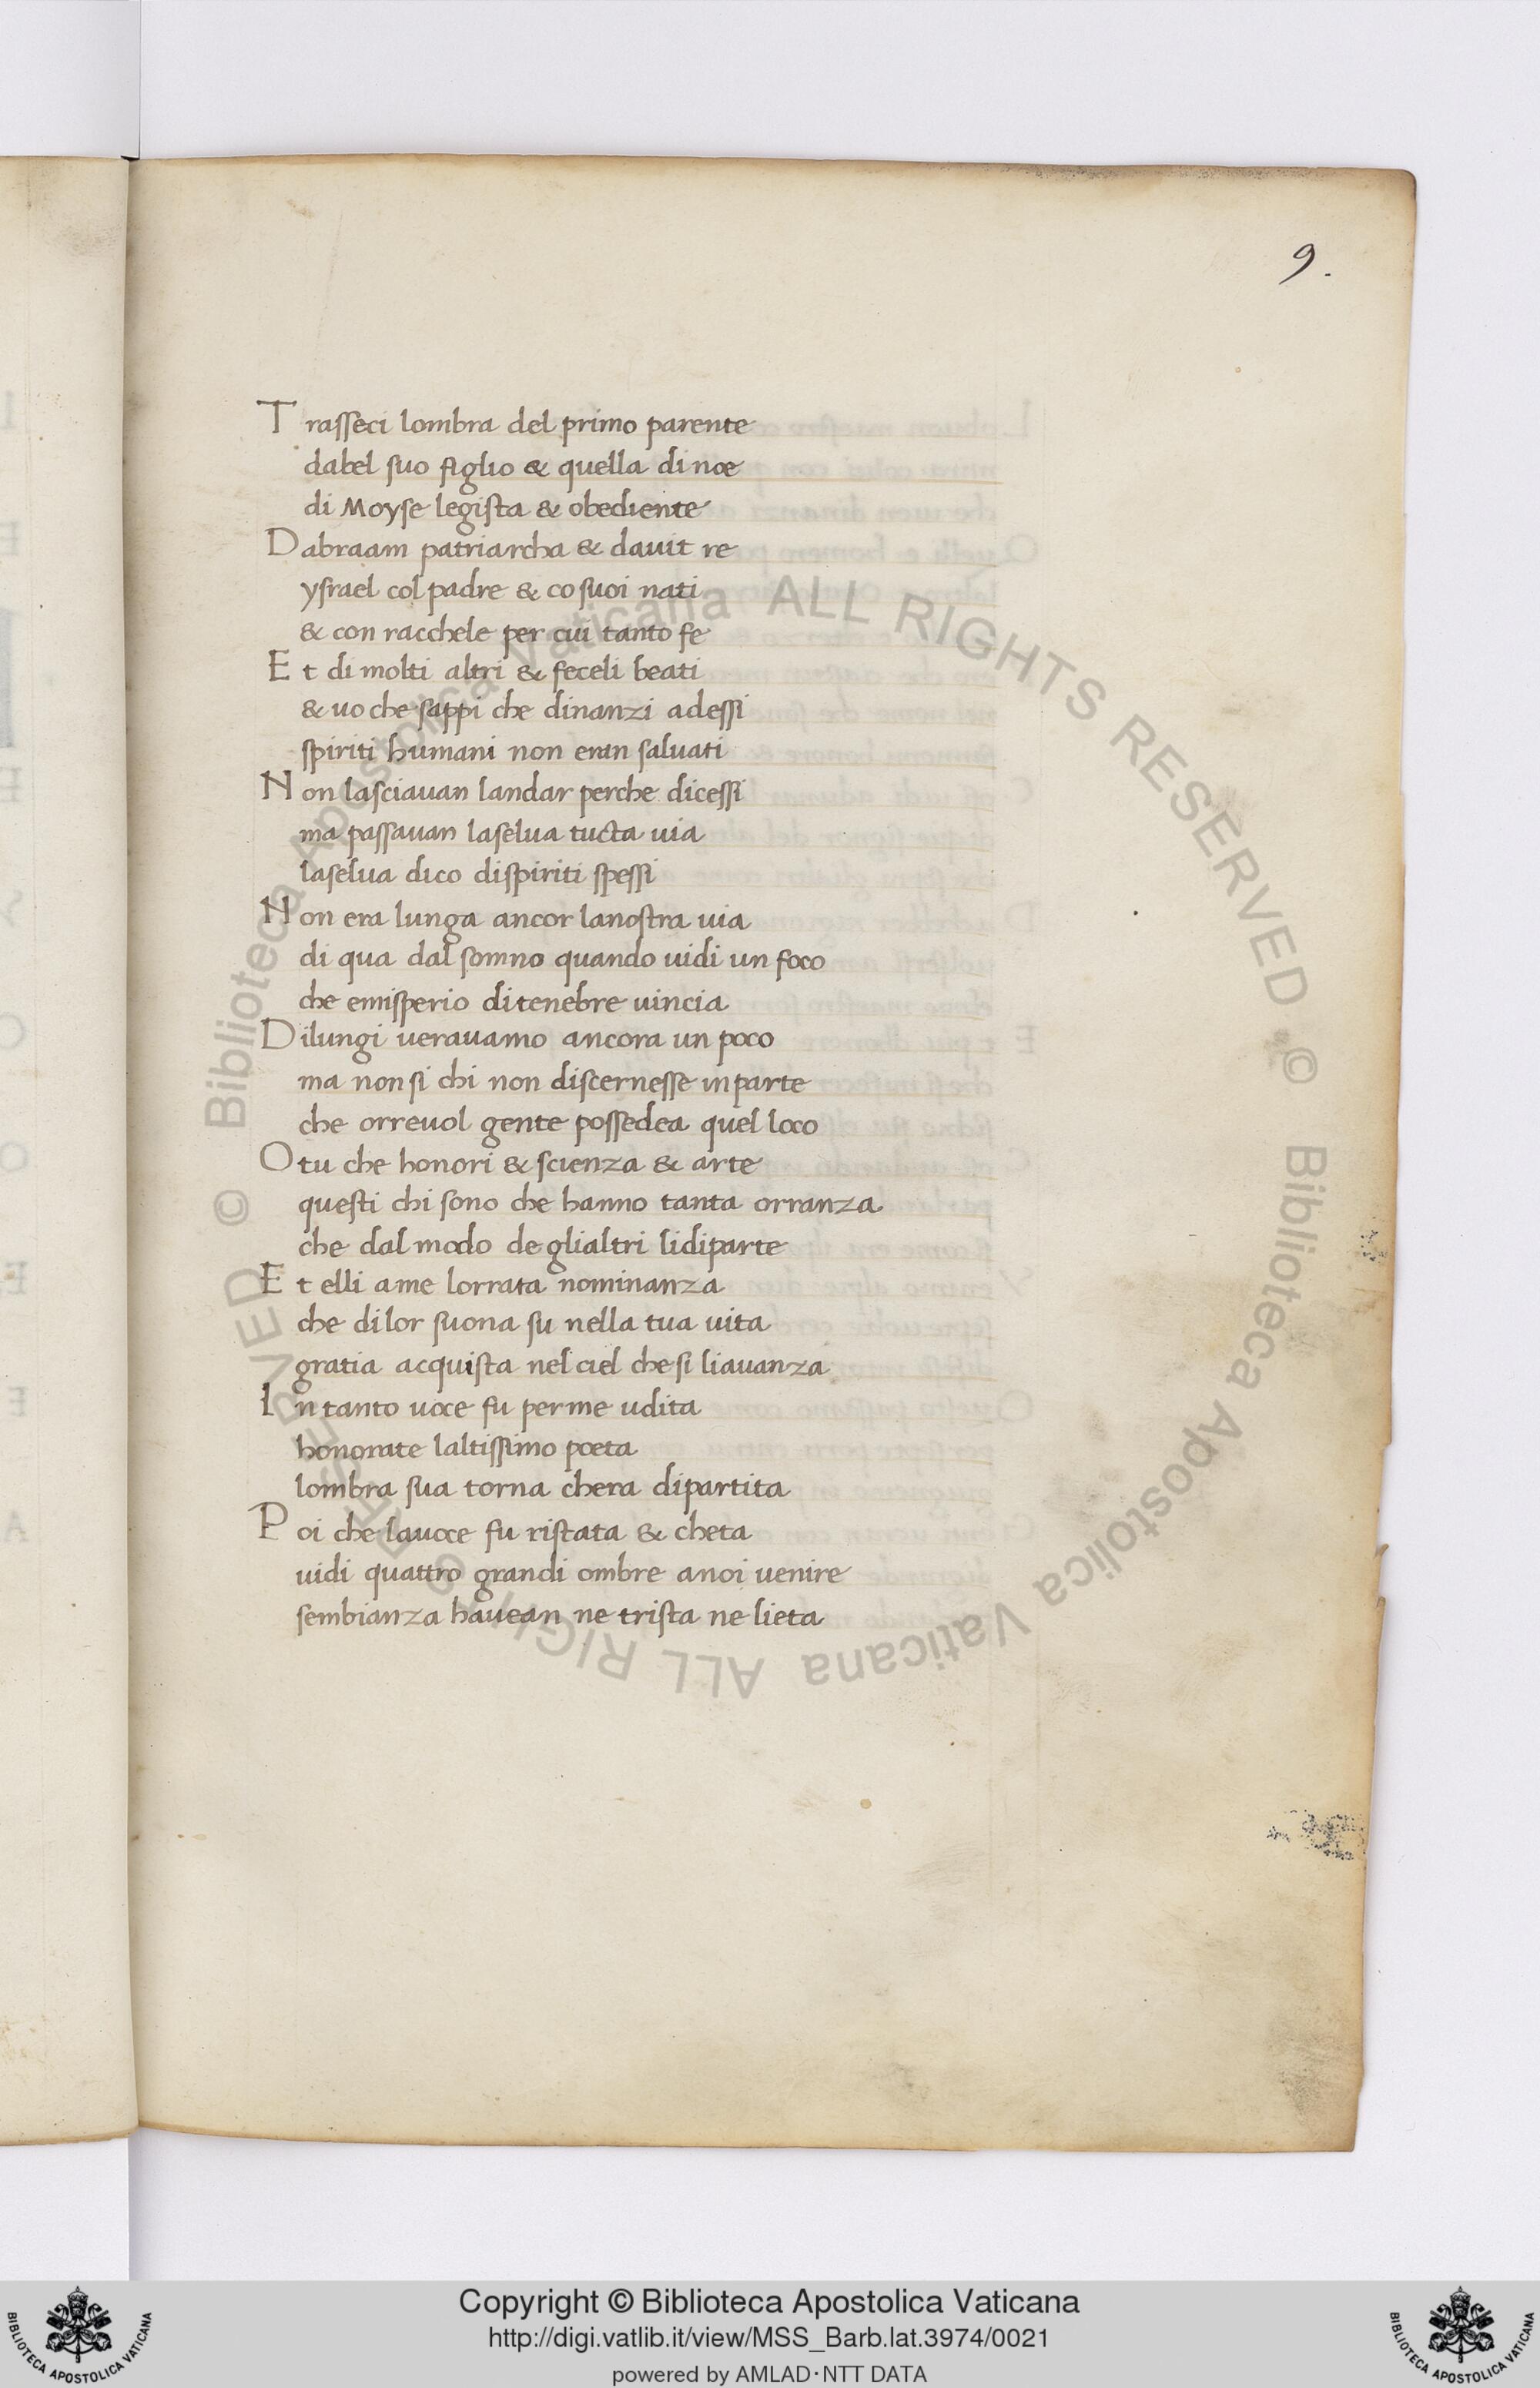 9.
Trasseci lombra del primo parente
dabel suo figlio & quella di noe
di Moyse legista & obediente
Dabraam patriarcha & dauit re
ysrael col padre & co suoi nati
& con racchele per cui tanto fe
Et di molti altri & feceli beati
& uo che sappi che dinanzi adessi
spiriti humani non eran saluati
Non lasciauan landar perche dicessi
ma passauan laselua tucta uia
laselua dico dispiriti spessi
Non era lunga ancor lanostra uia
di qua dal somno quando uidi un foco
che emisperio ditenebre uincia
Dilungi uerauamo ancora un poco
ma non si chi non discernesse inparte
che orreuol gente possedea quel loco
O tu che honori & scienza & arte
questi chi sono che hanno tanta orranza
che dal modo de glialtri lidiparte
Et elli ame lorrata nominanza
che dilor suona su nella tua uita
gratia acquista nel ciel che si liauanza
In tanto uoce fu per me udita
honorate laltissimo poeta
lombra sua torna chera dipartita
Poi che lauoce fu ristata & cheta
uidi quattro grandi ombre anoi uenire
sembianza hauean ne trista ne lieta
© Biblioteca Apostolica Vaticana ALL RIGHTS RESERVED © Biblioteca Apostolica Vaticana ALL RIGHTS RESERVED
Copyright © Biblioteca Apostolica Vaticana
http://digi.vatlib.it/view/MSS_Barb.lat.3974/0021
powered by AMLAD·NTT DATA
BIBLIOTECA APOSTOLICA VATICANA
BIBLIOTECA APOSTOLICA VATICANA